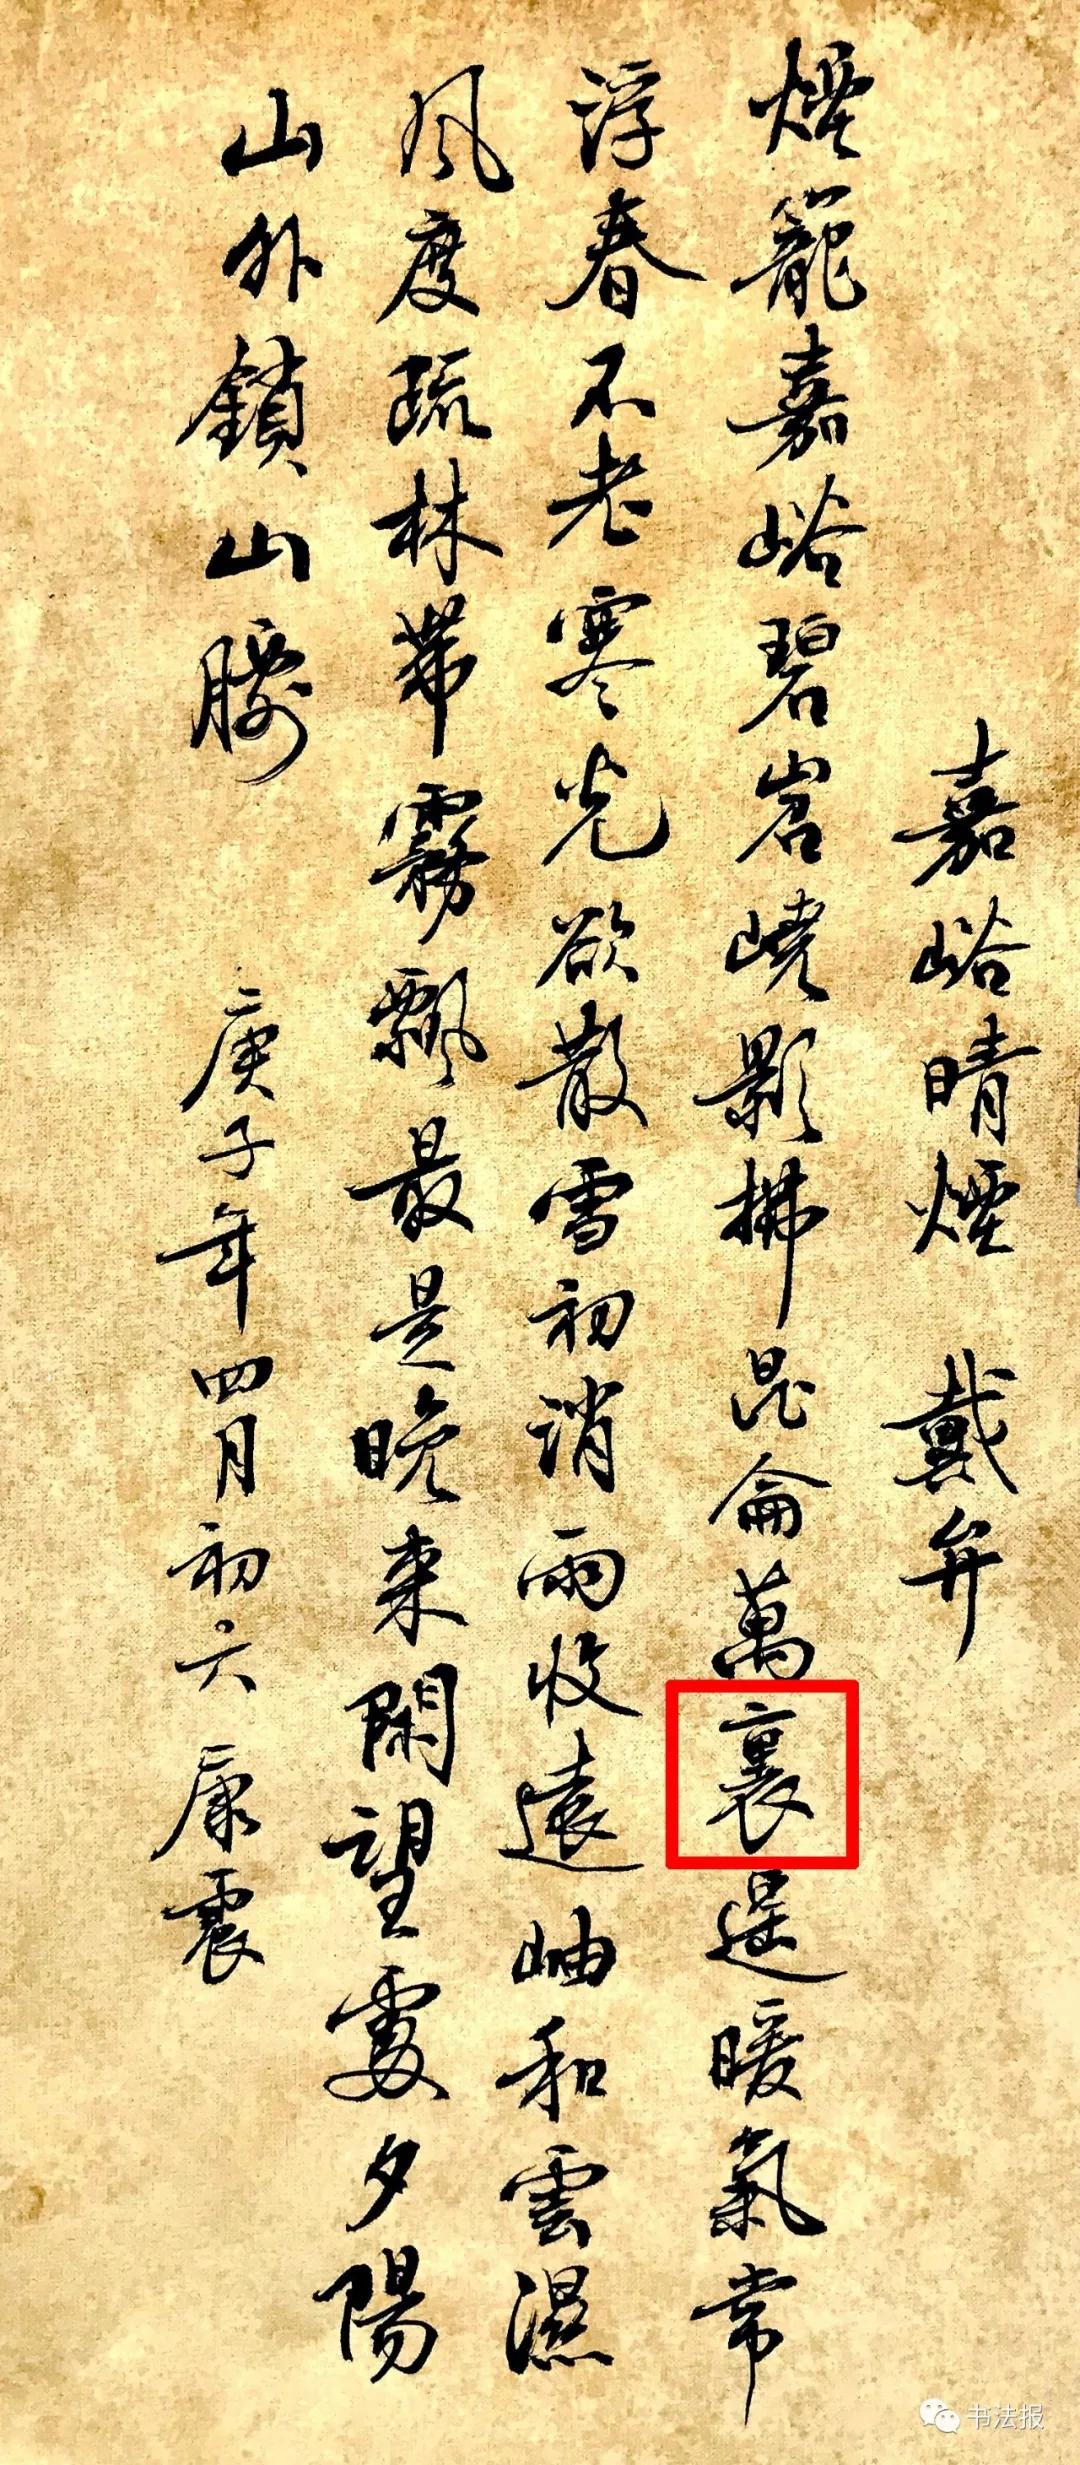 嘉峪晴煙 戴弁
煙籠嘉峪碧岧嶢影拂昆侖萬裏遥暖氣常
浮春不老寒光欲散雪初消雨收遠岫和雲濕
風度疏林帶霧飄最是晚来閑望處夕陽
山外鎖山腰 庚子年四月初六康震
书法报